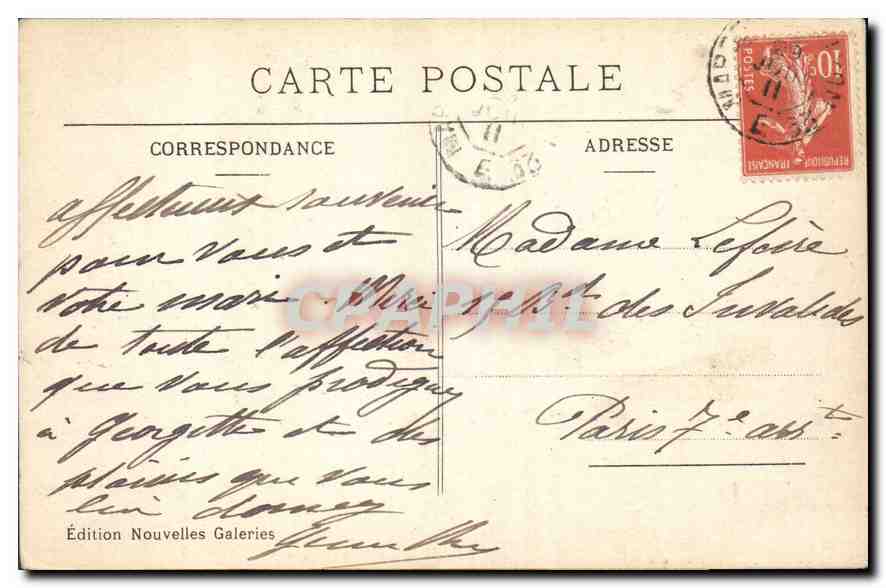 CARTE POSTALE
CORRESPONDANCE
ADRESSE
10c
POSTES
REPUBLIQUE FRANÇAISE
11
E
11
E
affectueux souvenir
pour vous et
votre mari. Merci
de toute l'affection
que vous prodiguez
à Georgette et des
plaisirs que vous
lui donnez
Madame Lefoire
15 Bd des Invalides
Paris 7e arrt
CPAPHIL
Édition Nouvelles Galeries